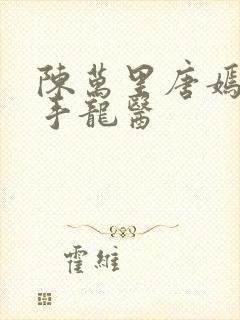 陳萬里唐嫣
手龍醫
霍維